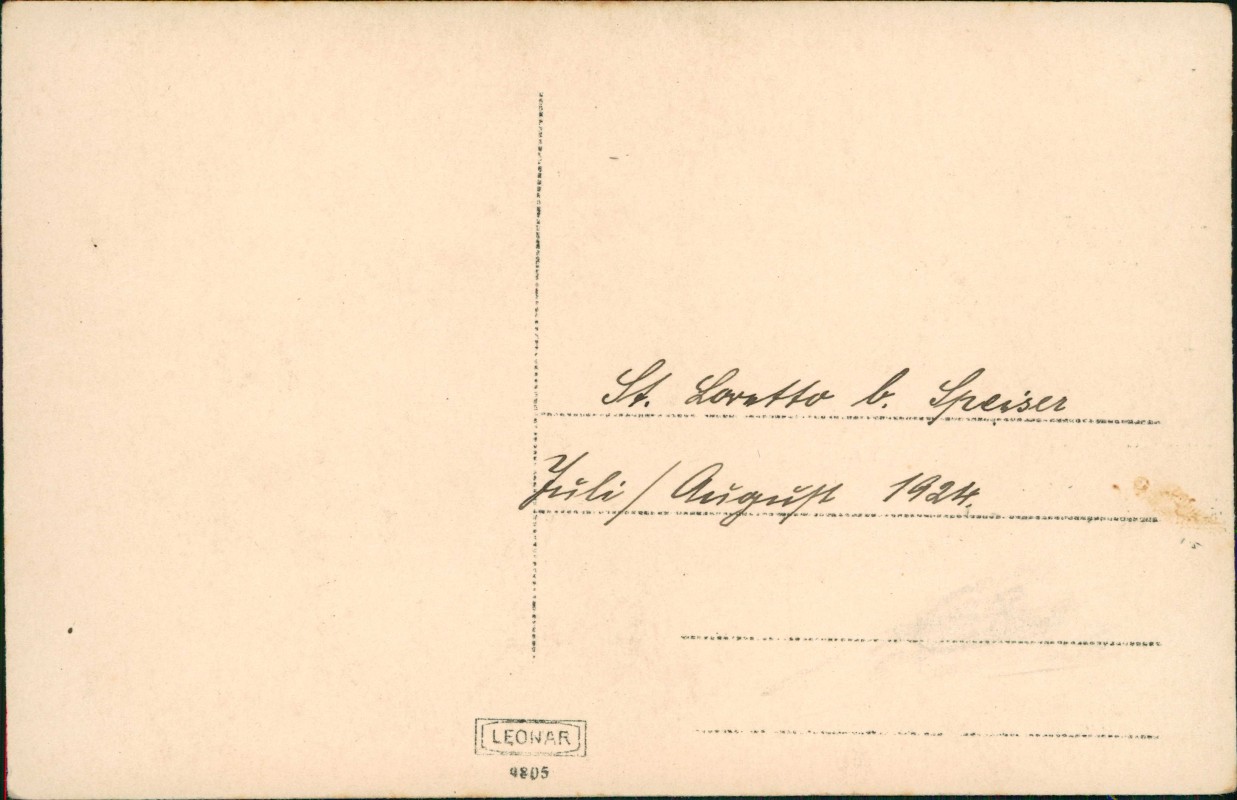 St. Loretto b. Speiser
Juli / August 1924.
LEONAR
4805